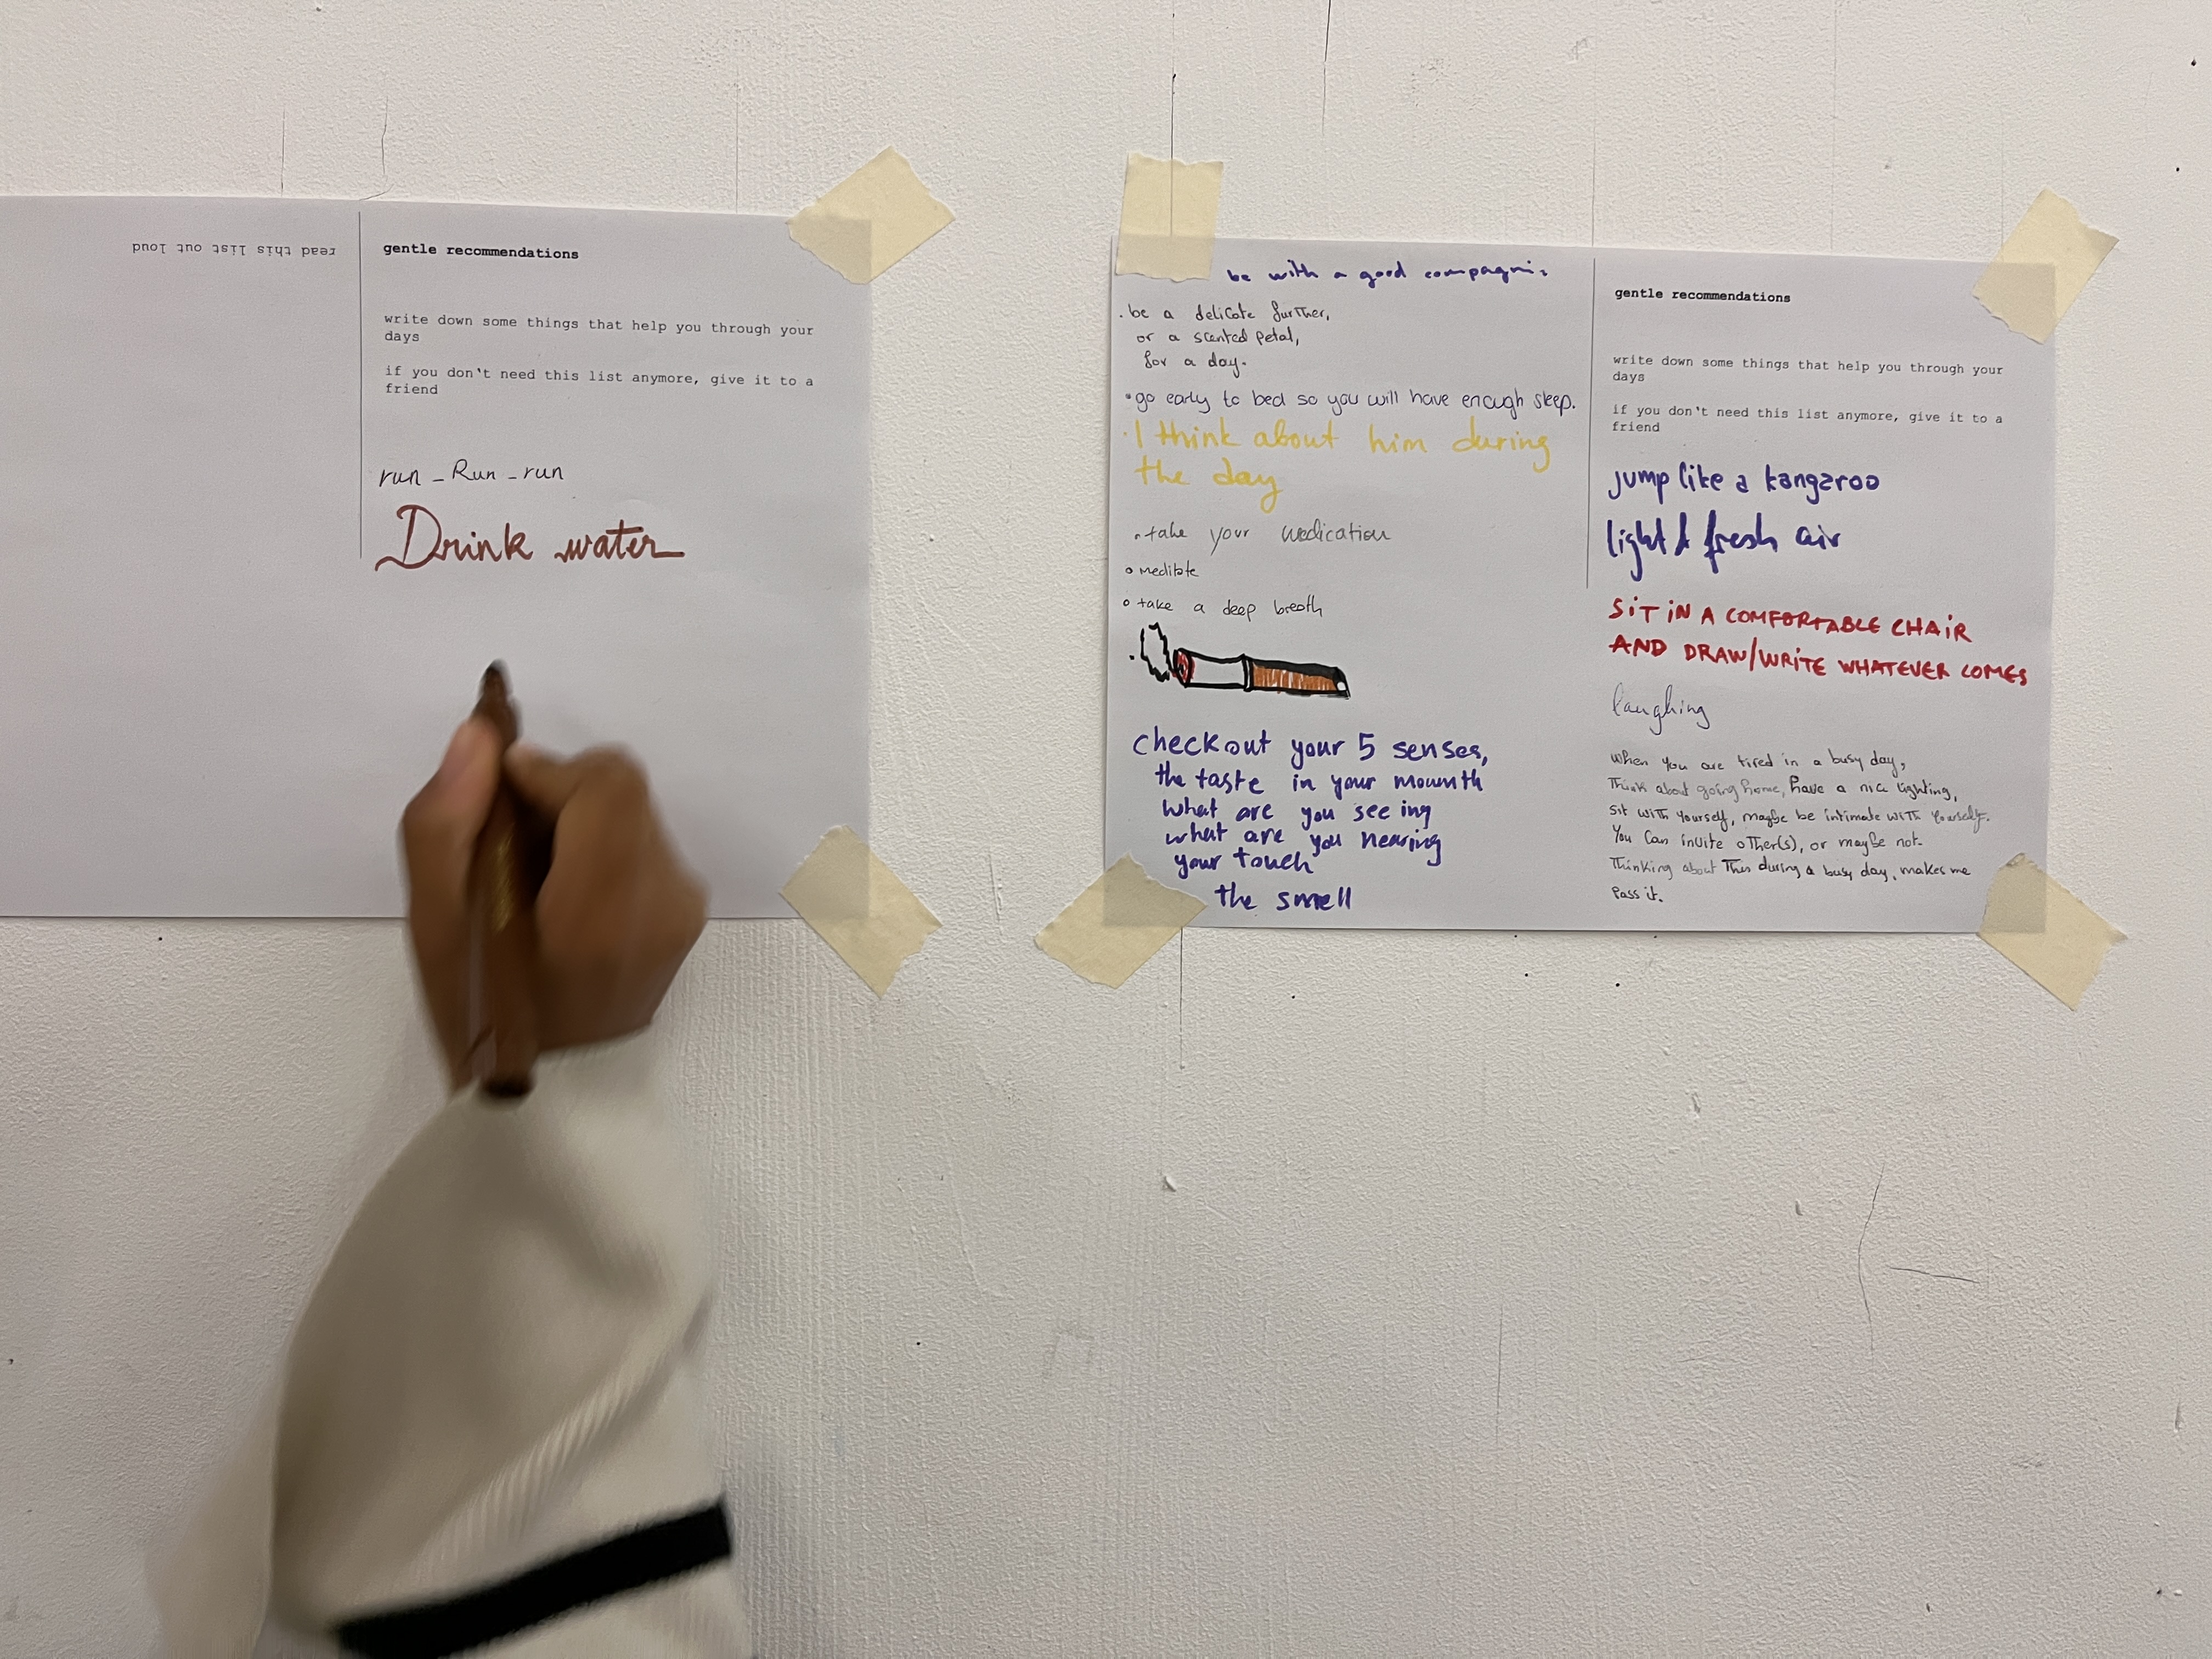 read this list out loud
gentle recommendations
write down some things that help you through your
days
if you don't need this list anymore, give it to a
friend
run - Run - run
Drink water
be with a good compagni.
. be a delicate further,
or a scented petal,
for a day.
• go early to bed so you will have enough sleep.
. I think about him during
the day
• take your medication
• meditate
• take a deep breath
checkout your 5 senses,
the taste in your mounth
what are you seeing
what are you hearing
your touch
the smell
gentle recommendations
write down some things that help you through your
days
if you don't need this list anymore, give it to a
friend
jump like a kangaroo
light & fresh air
SIT IN A COMFORTABLE CHAIR
AND DRAW/WRITE WHATEVER COMES
laughing
When you are tired in a busy day,
Think about going home, have a nice lighting,
sit with yourself, maybe be intimate with yourself.
You can invite other(s), or maybe not.
Thinking about this during a busy day, makes me
pass it.